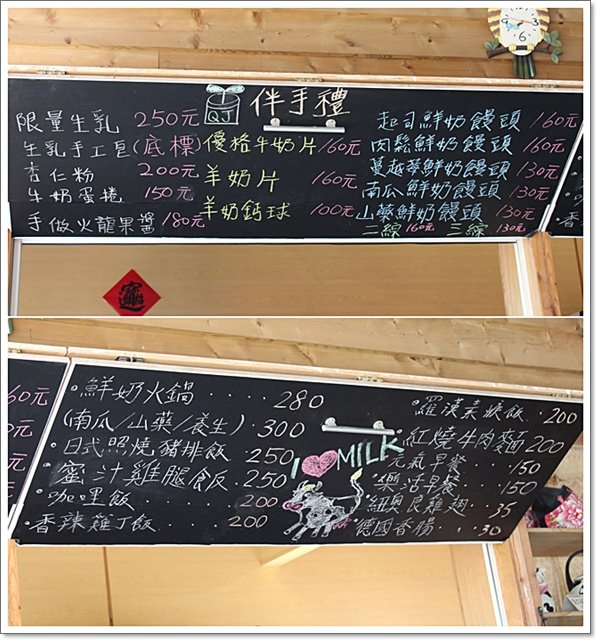 伴手禮
QJ
限量生乳 250元
生乳手工皂(底標)
杏仁粉 200元
牛奶蛋捲 150元
手做火龍果醬 180元
優格牛奶片 160元
羊奶片 160元
羊奶鈣球 100元
起司鮮奶饅頭 160元
肉鬆鮮奶饅頭 160元
蔓越莓鮮奶饅頭 130元
南瓜鮮奶饅頭 130元
山藥鮮奶饅頭 130元
二線 160元 三線 130元
香
60元
元
元
鮮奶火鍋 280
(南瓜/山藥/養生) 300
日式照燒豬排飯 250
蜜汁雞腿飯 250
咖哩飯 200
香辣雞丁飯 200
I MILK
羅漢素燥飯 200
紅燒牛肉麵 200
元氣早餐 150
樂活早餐 150
紐奧良雞翅 35
德國香腸 30